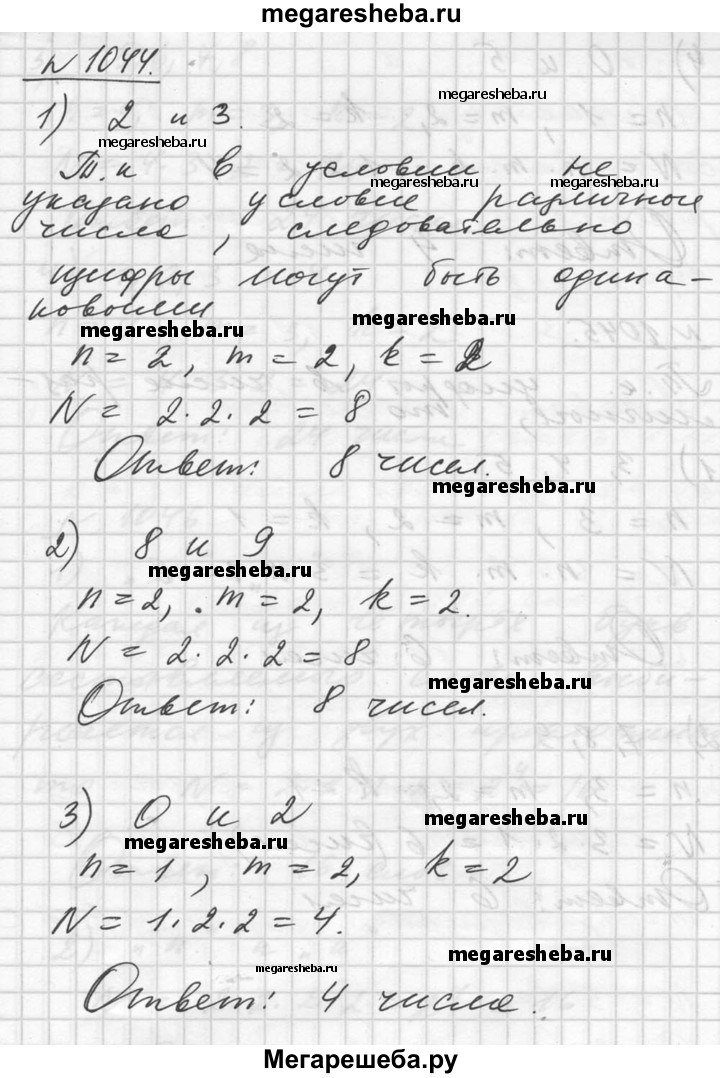 megaresheba.ru
N 1044.
1) 2 и 3.
megaresheba.ru
megaresheba.ru
Т.к в условии не
megaresheba.ru
megaresheba.ru
указано условие различные
числа, следовательно
цифры могут быть одина-
ковыми
megaresheba.ru
megaresheba.ru
n = 2, m = 2, k = 2
N = 2·2·2 = 8
Ответ: 8 чисел.
megaresheba.ru
2) 8 и 9
megaresheba.ru
n = 2, m = 2, k = 2.
N = 2·2·2 = 8
megaresheba.ru
Ответ: 8 чисел.
3) 0 и 2
megaresheba.ru
megaresheba.ru
n = 1, m = 2, k = 2
N = 1·2·2 = 4.
megaresheba.ru
megaresheba.ru
Ответ: 4 числа.
Мегарешеба.ру